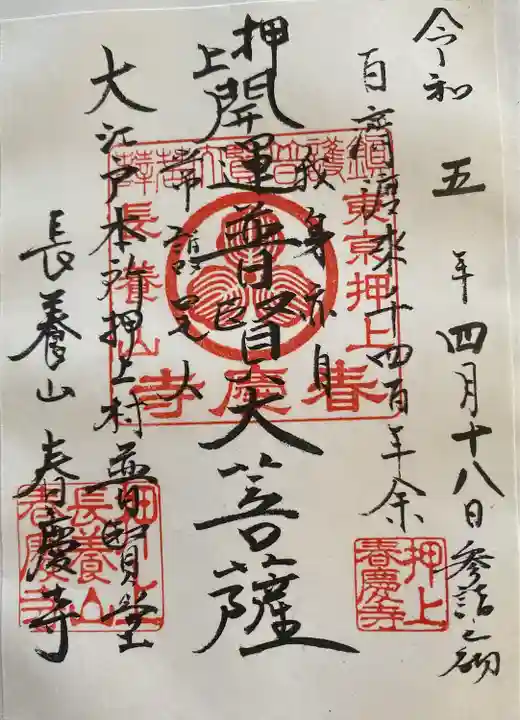 令和五年四月十八日参詣之砌
百済渡来千四百年余
我身亦身
押上
開運普賢大菩薩
常詣是人
大江戸本所押上村普賢堂
長養山春慶寺
東京押上
春慶寺
長養山
押上
春慶寺
押上
長養山
春慶寺